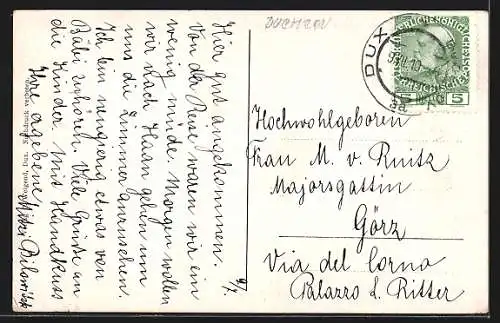 DUCHCOV
DUX
5
Hier gut angekommen.
Von der Reise waren wir ein
wenig müde. Morgen wollen
wir nach Haan gehen um
uns die Zimmer anzusehen.
Ich bin neugierig etwas von
Bübi zu hören. Viele Grüße an
die Kinder. Mit Handkuss
Ihre ergebene
9/7
Hochwohlgeboren
Frau M. v. Ruitz
Majorsgattin
Görz
Via del Corno
Palazzo d. Ritter